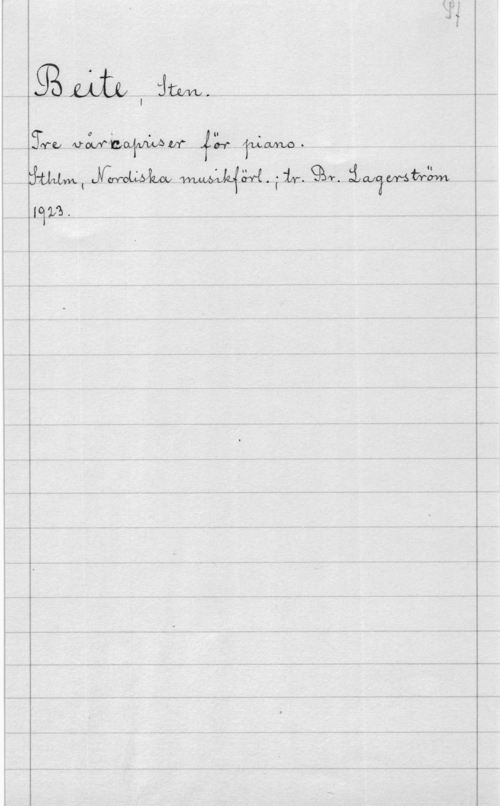 Pf
Beite, Sten.
Tre vårcapriser för piano.
Sthlm, Nordiska musikförl.; tr. Br. Lagerström
1923.